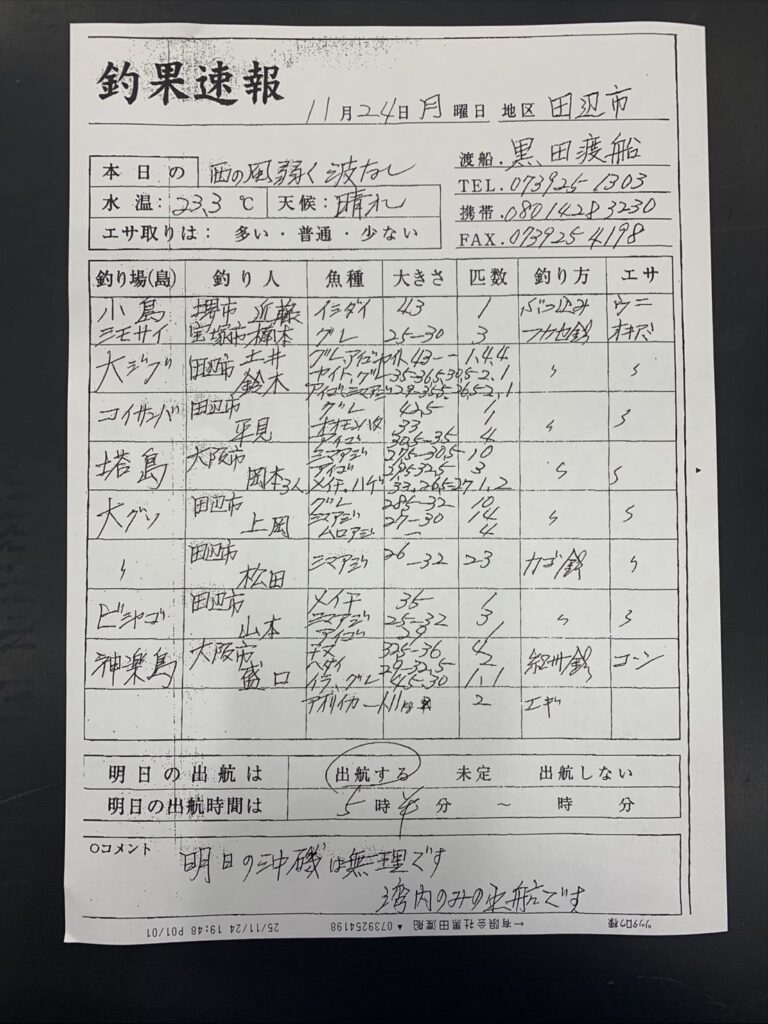 釣果速報
11月24日月曜日 地区 田辺市
渡船. 黒田渡船
本日の 西の風弱く波なし
TEL. 073925 1303
水温: 23.3 ℃ 天候: 晴れ
携帯. 0801428 3230
エサ取りは: 多い・普通・少ない
FAX. 073925 4198
釣り場(島) 釣り人 魚種 大きさ 匹数 釣り方 エサ
小島 堺市 近藤 イシダイ 43 1 ぶっ込み ウニ
ミモサイ 宝塚市 楠本 グレ 25-30 3 フカセ釣 オキアミ
大ジブ 田辺市 土井 グレ、アイゴ
鈴木
コイサンバ 田辺市 平見 グレ 42.5 1
オオモンハタ 33 1
アイゴ 30.5-35 4
塔島 大阪市 岡本3人 シマアジ 10
アイゴ 3
メイチ、ハゲ 33、26.5-27 1、2
大グソ 田辺市 上岡 グレ 28.5-32 10
シマアジ 27-30 14
ムロアジ ー 4
〃 田辺市 松田 シマアジ 26-32 23 カゴ釣 〃
ビシャゴ 田辺市 山本 メイチ 35 1
シマアジ 25-32 3
アイゴ 29 1
神楽島 大阪市 盛口 チヌ 32.5-36 4 コーン
ヘダイ 29-32.5 2
イラ、グレ 45-30 1、1
アオリイカ 2 エギ
明日の出航は 出航する 未定 出航しない
明日の出航時間は 5時半分 ~ 時 分
○コメント
明日の沖磯は無理です
湾内のみの出船です
ツッタロウ様 ←有限会社黒田渡船 ▲ 0739254198 25/11/24 19:48 P01/01